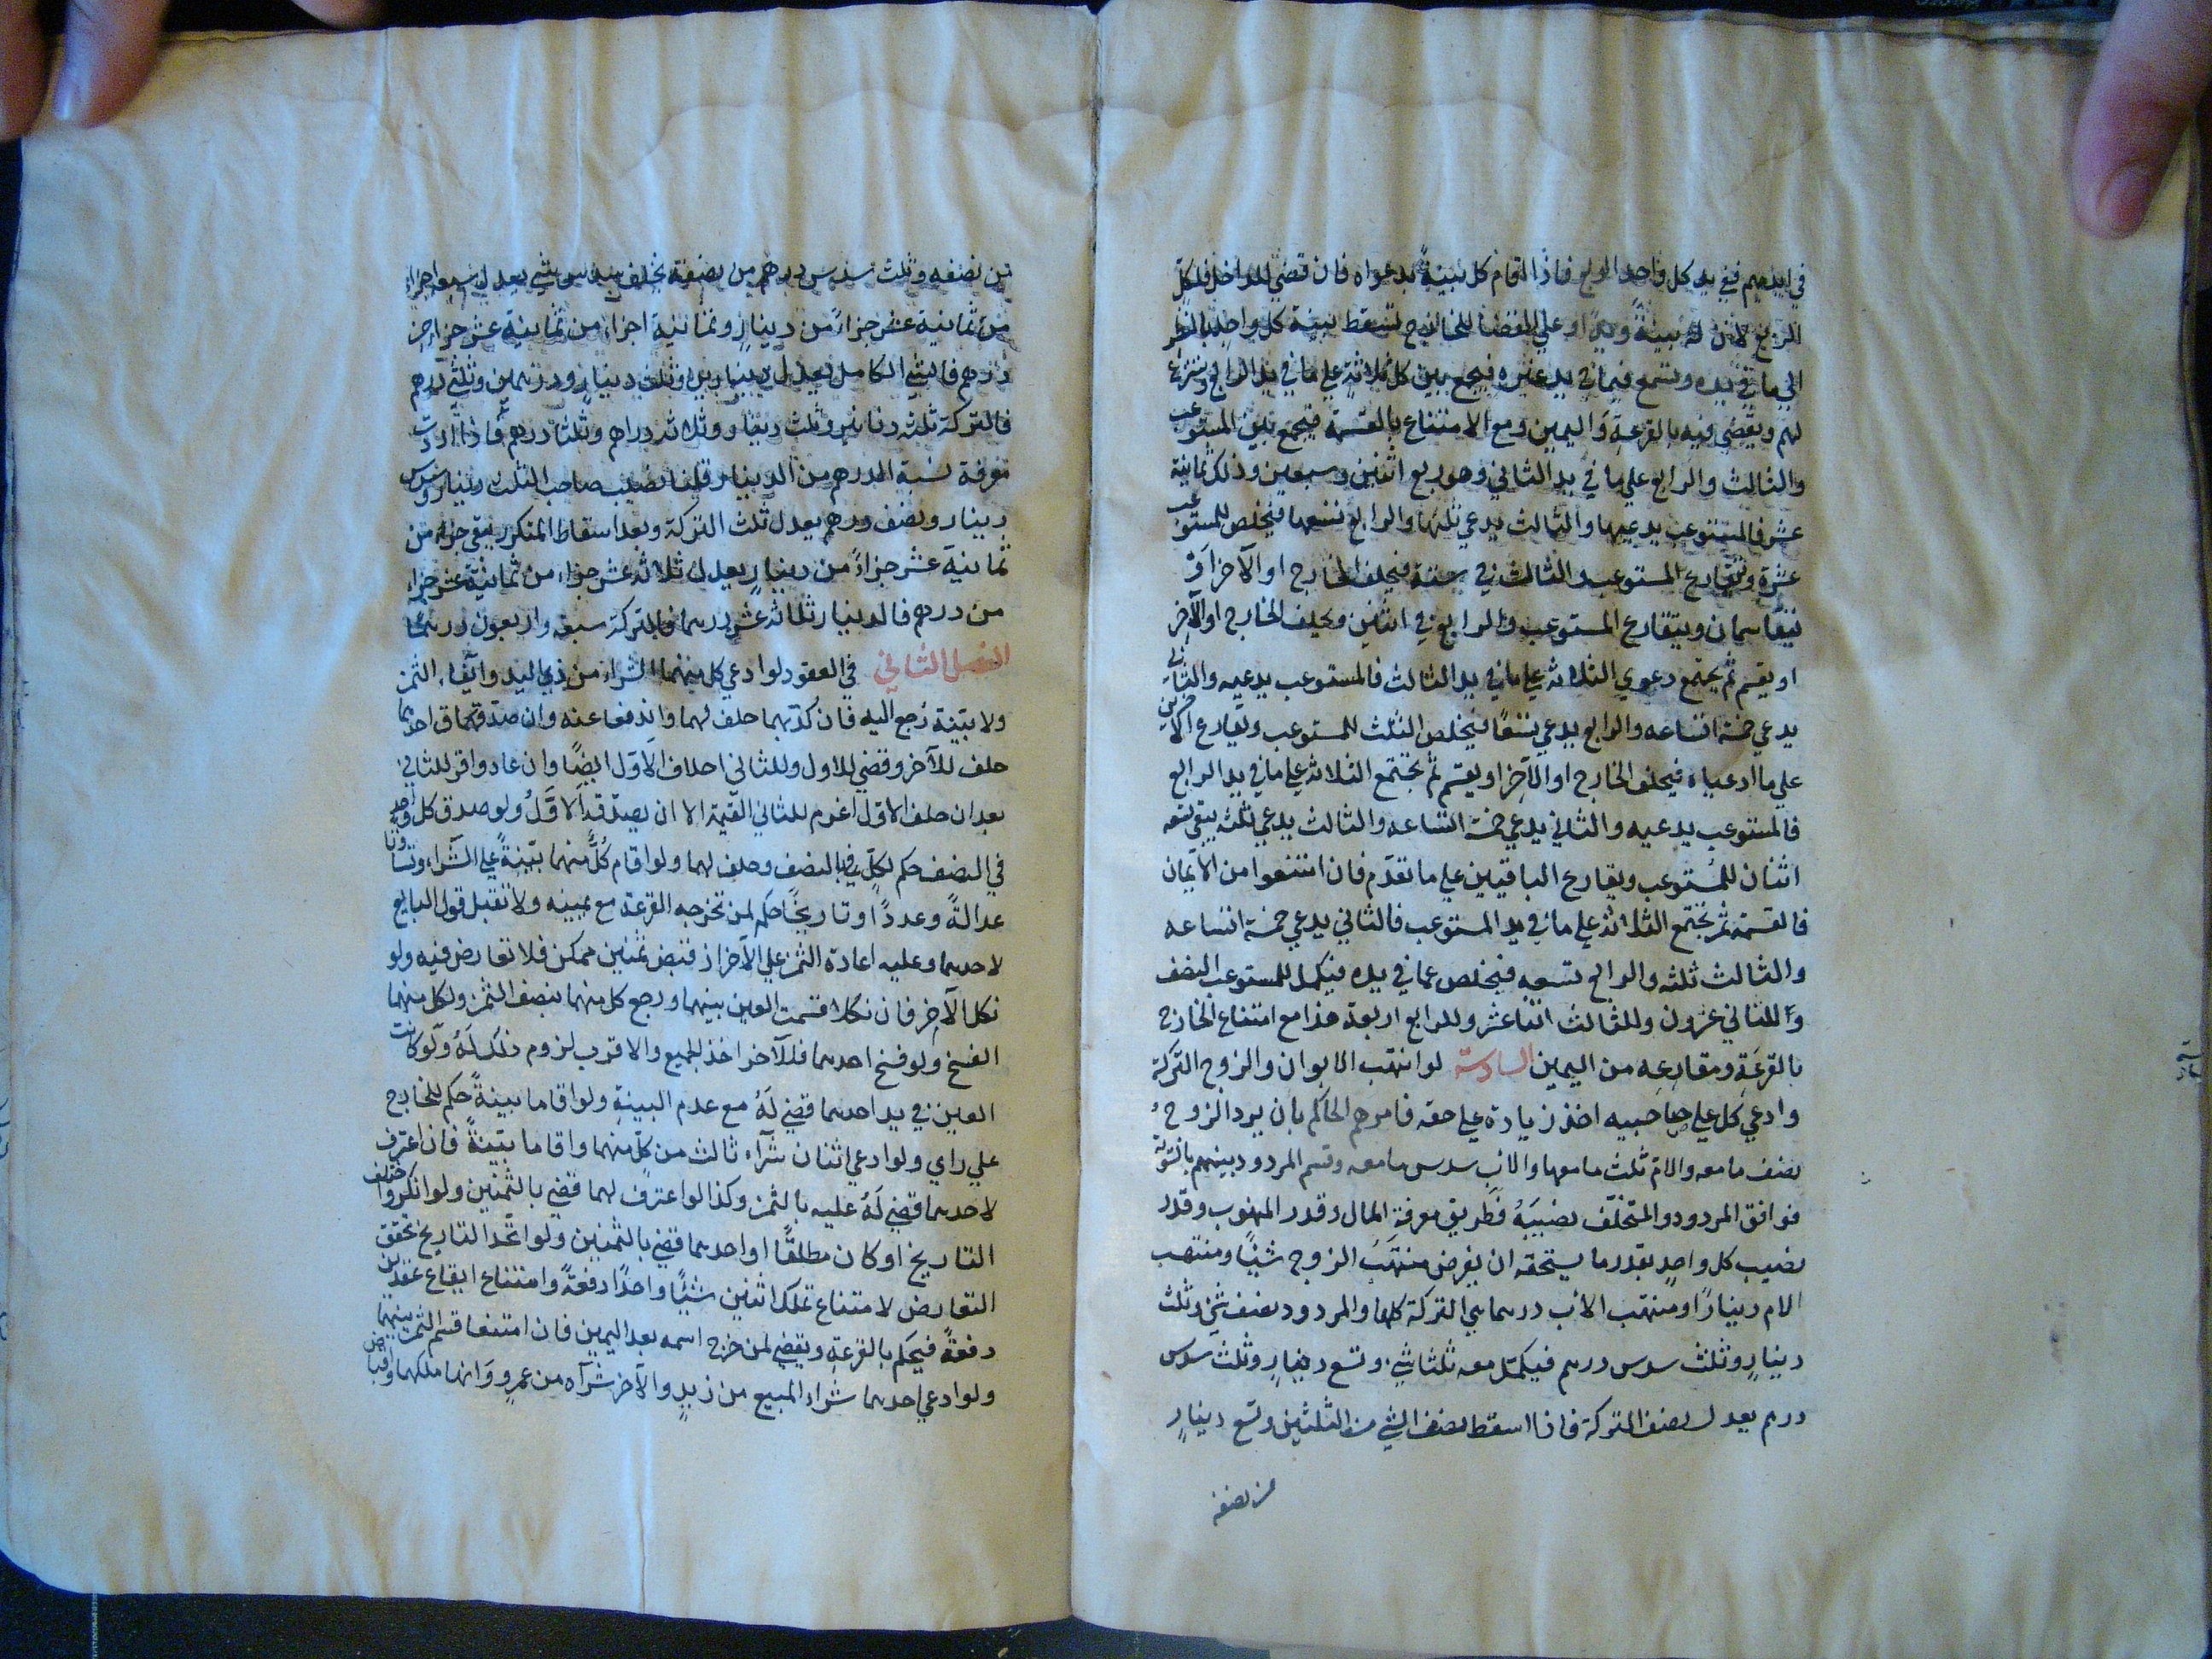 في ايديهم ففي يد كل واحد الربع فاذا اقام كل بينة بدعواه فان قضي للداخل فلكل
الربع لان له بينة ويدا وعلي القضا للخارج تسقط بينة كل واحد بالنظر
الي ما في يده وتسمع فيما في يد غيره فيجمع بين كل ثلاثة علي ما في يد الرابع وينتزع
لهم ويقضي فيه بالقرعة واليمين ومع الامتناع بالقسمة فيجمع بين المستوعب
والثالث والرابع علي ما في يد الثاني وهو ربع اثنين وسبعين وذلك ثمانية
عشر فالمستوعب يدعيها والثالث يدعي ثلثها والرابع تسعها فيخلص للمستوعب
عشرة ويقارع المستوعب والثالث في ستة فيحلف الخارج او الآخر او
يتقاسمان ويتقارع المستوعب والرابع في اثنين ويحلف الخارج او الآخر
او يقسم ثم يجتمع دعوي الثلاثة علي ما في يد الثالث فالمستوعب يدعيه والثاني
يدعي خمسة اتساعه والرابع يدعي تسعا فيخلص الثلث للمستوعب ويقارع الآخرين
علي ما ادعياه فيحلف الخارج او الآخر او يقسم ثم تجتمع الثلاثة علي ما في يد الرابع
فالمستوعب يدعيه والثاني يدعي خمسة اتساعه والثالث يدعي ثلثه يبقي تسعه
اثنان للمستوعب ويقارع الباقيين علي ما تقدم فان امتنعوا من الايمان
فالقسمة ثم تجتمع الثلاثة علي ما في يد المستوعب فالثاني يدعي خمسة اتساعه
والثالث ثلثه والرابع تسعه فيخلص عما في يده فيكمل للمستوعب النصف
وللثاني عشرون وللثالث اثنا عشر وللرابع اربعة هذا مع امتناع الخارج
بالقرعة ومقارعه من اليمين السادسة لو انتهب الابوان والزوج التركة
وادعي كل علي صاحبيه اخذ زيادة علي حقه فامرهم الحاكم بان يرد الزوج
نصف ما معه والام ثلث ما معها والاب سدس ما معه وقسم المردود بينهم بالسوية
فوافق المردود والمتخلف نصيبه فطريق معرفة المال وقدر المنهوب وقدر
نصيب كل واحد بقدر ما يستحقه ان يفرض منتهب الزوج شيئا ومنتهب
الام دينارا ومنتهب الاب درهما هي التركة كلها والمردود نصف شئ وثلث
دينار وثلث سدس درهم فيكمل معه ثلثا شئ وتسع دينار وثلث سدس
درهم يعدل نصف التركة فاذا اسقط نصف الشئ من الثلثين وتسع دينار
من نصفه
من نصفه وثلث سدس درهم من نصفه تخلف سدس شئ يعدل سبعة اجزاء
من ثمانية عشر جزاء من دينار وثمانية اجزاء من ثمانية عشر جزاء من
درهم فالشئ الكامل يعدل دينارين وثلث دينار ودرهمين وثلثي درهم
فالتركة ثلثة دنانير وثلث دينار وثلاثة دراهم وثلثا درهم فاذا اردت
معرفة نسبة الدرهم من الدينار قلنا نصيب صاحب الثلث دينار وسدس
دينار ونصف درهم يعدل ثلث التركة وبعد اسقاط المتكرر يبقي جزء من
ثمانية عشر جزاء من دينار يعدل ثلاثة عشر جزاء من ثمانية عشر جزاء
من درهم فالدينار ثلاثة عشر درهما فالتركة سبعة واربعون درهما
الفصل الثاني في العقود لو ادعي كل منهما الشراء من ذي اليد وايفاء الثمن
ولا بينة رجع اليه فان كذبهما حلف لهما واندفعا عنه وان صدق احدهما
حلف للآخر وقضي للاول وللثاني احلاف الاول ايضا وان عاد واقر للثاني
بعد ان حلف الاول اغرم للثاني القيمة الا ان يصدقه الاول ولو صدق كل واحد
في النصف حكم لكل بالنصف وحلف لهما ولو اقام كل منهما بينة علي الشراء وتساويا
عدالة وعددا وتاريخا حكم لمن تخرجه القرعة مع يمينه ولا تقبل قول البايع
لاحدهما وعليه اعادة الثمن علي الآخر اذ قبض ثمنين ممكن فلا تعارض فيه ولو
نكل الآخر فان نكلا قسمت العين بينهما ورجع كل منهما بنصف الثمن ولكل منهما
الفسخ ولو فسخ احدهما فللآخر اخذ الجميع والاقرب لزوم ذلك له ولو كانت
العين في يد احدهما قضي له مع عدم البينة ولو اقاما بينة حكم للخارج
علي راي ولو ادعي اثنان شرآء ثالث من كل منهما واقاما بينة فان اعترف
لاحدهما قضي له عليه بالثمن وكذا لو اعترف لهما قضي بالثمنين ولو انكر واختلف
التاريخ او كان مطلقا او احدهما قضي بالثمنين ولو اتحد التاريخ تحقق
التعارض لامتناع تملك اثنين شيئا واحدا دفعة وامتناع ايقاع عقدين
دفعة فيحكم بالقرعة ويقضي لمن خرج اسمه بعد اليمين فان امتنعا قسم الثمن بينهما
ولو ادعي احدهما شراء المبيع من زيد والآخر شرآه من عمرو وانها ملكهما واقباض